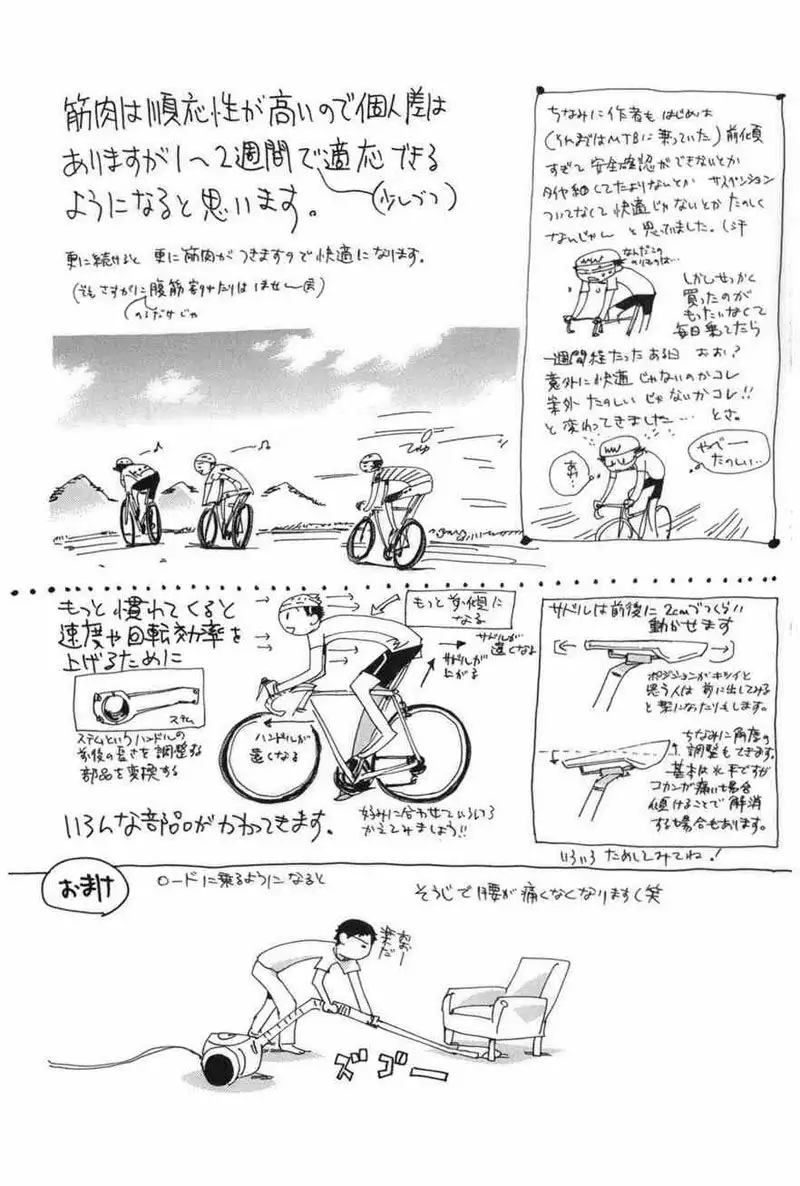 筋肉は順応性が高いので個人差は
ありますが1〜2週間で適応できる
ようになると思います。
(少しづつ)
更に続けると 更に筋肉がつきますので快適になります。
(でもさすがに腹筋割れたりは
のるだけじゃ
ちなみに作者も はじめは
(それまではMTBに乗っていた) 前傾
すぎて安全確認ができないとか
タイヤ細くてたよりないとか サスペンション
ついてなくて快適じゃないとか たのしく
ないじゃん と思ってました。(汗
なんだこの
のりものは…
しかしせっかく
買ったのが
もったいなくて
毎日乗ってたら
一週間経たったある日 おお?
意外に快適じゃないのかコレ
案外たのしいじゃないかコレ!!
と変わってきました… とさ。
やべー
たのしい…
もっと慣れてくると
速度や回転効率を
上げるために
ステム
ステムというハンドルの
前後の長さを調整する
部品を交換する
もっと前傾に
なる
サドルが
遠くなる
サドルが
上がる
ハンドルが
遠くなる
いろんな部品がかわってきます。
好みに合わせていろいろ
かえてみましょう!!
サドルは前後に2cmづつくらい
動かせます
ポジションがキツイと
思う人は前に出してみる
と楽になったりもします。
ちなみに角度の
調整もできます。
基本は水平ですが
コカンが痛い場合
傾けることで解消
する場合もあります。
いろいろためしてみてね!
おまけ
ロードに乗るようになると
そうじで腰が痛くなくなります(笑
おおー
楽だ
ズゴー